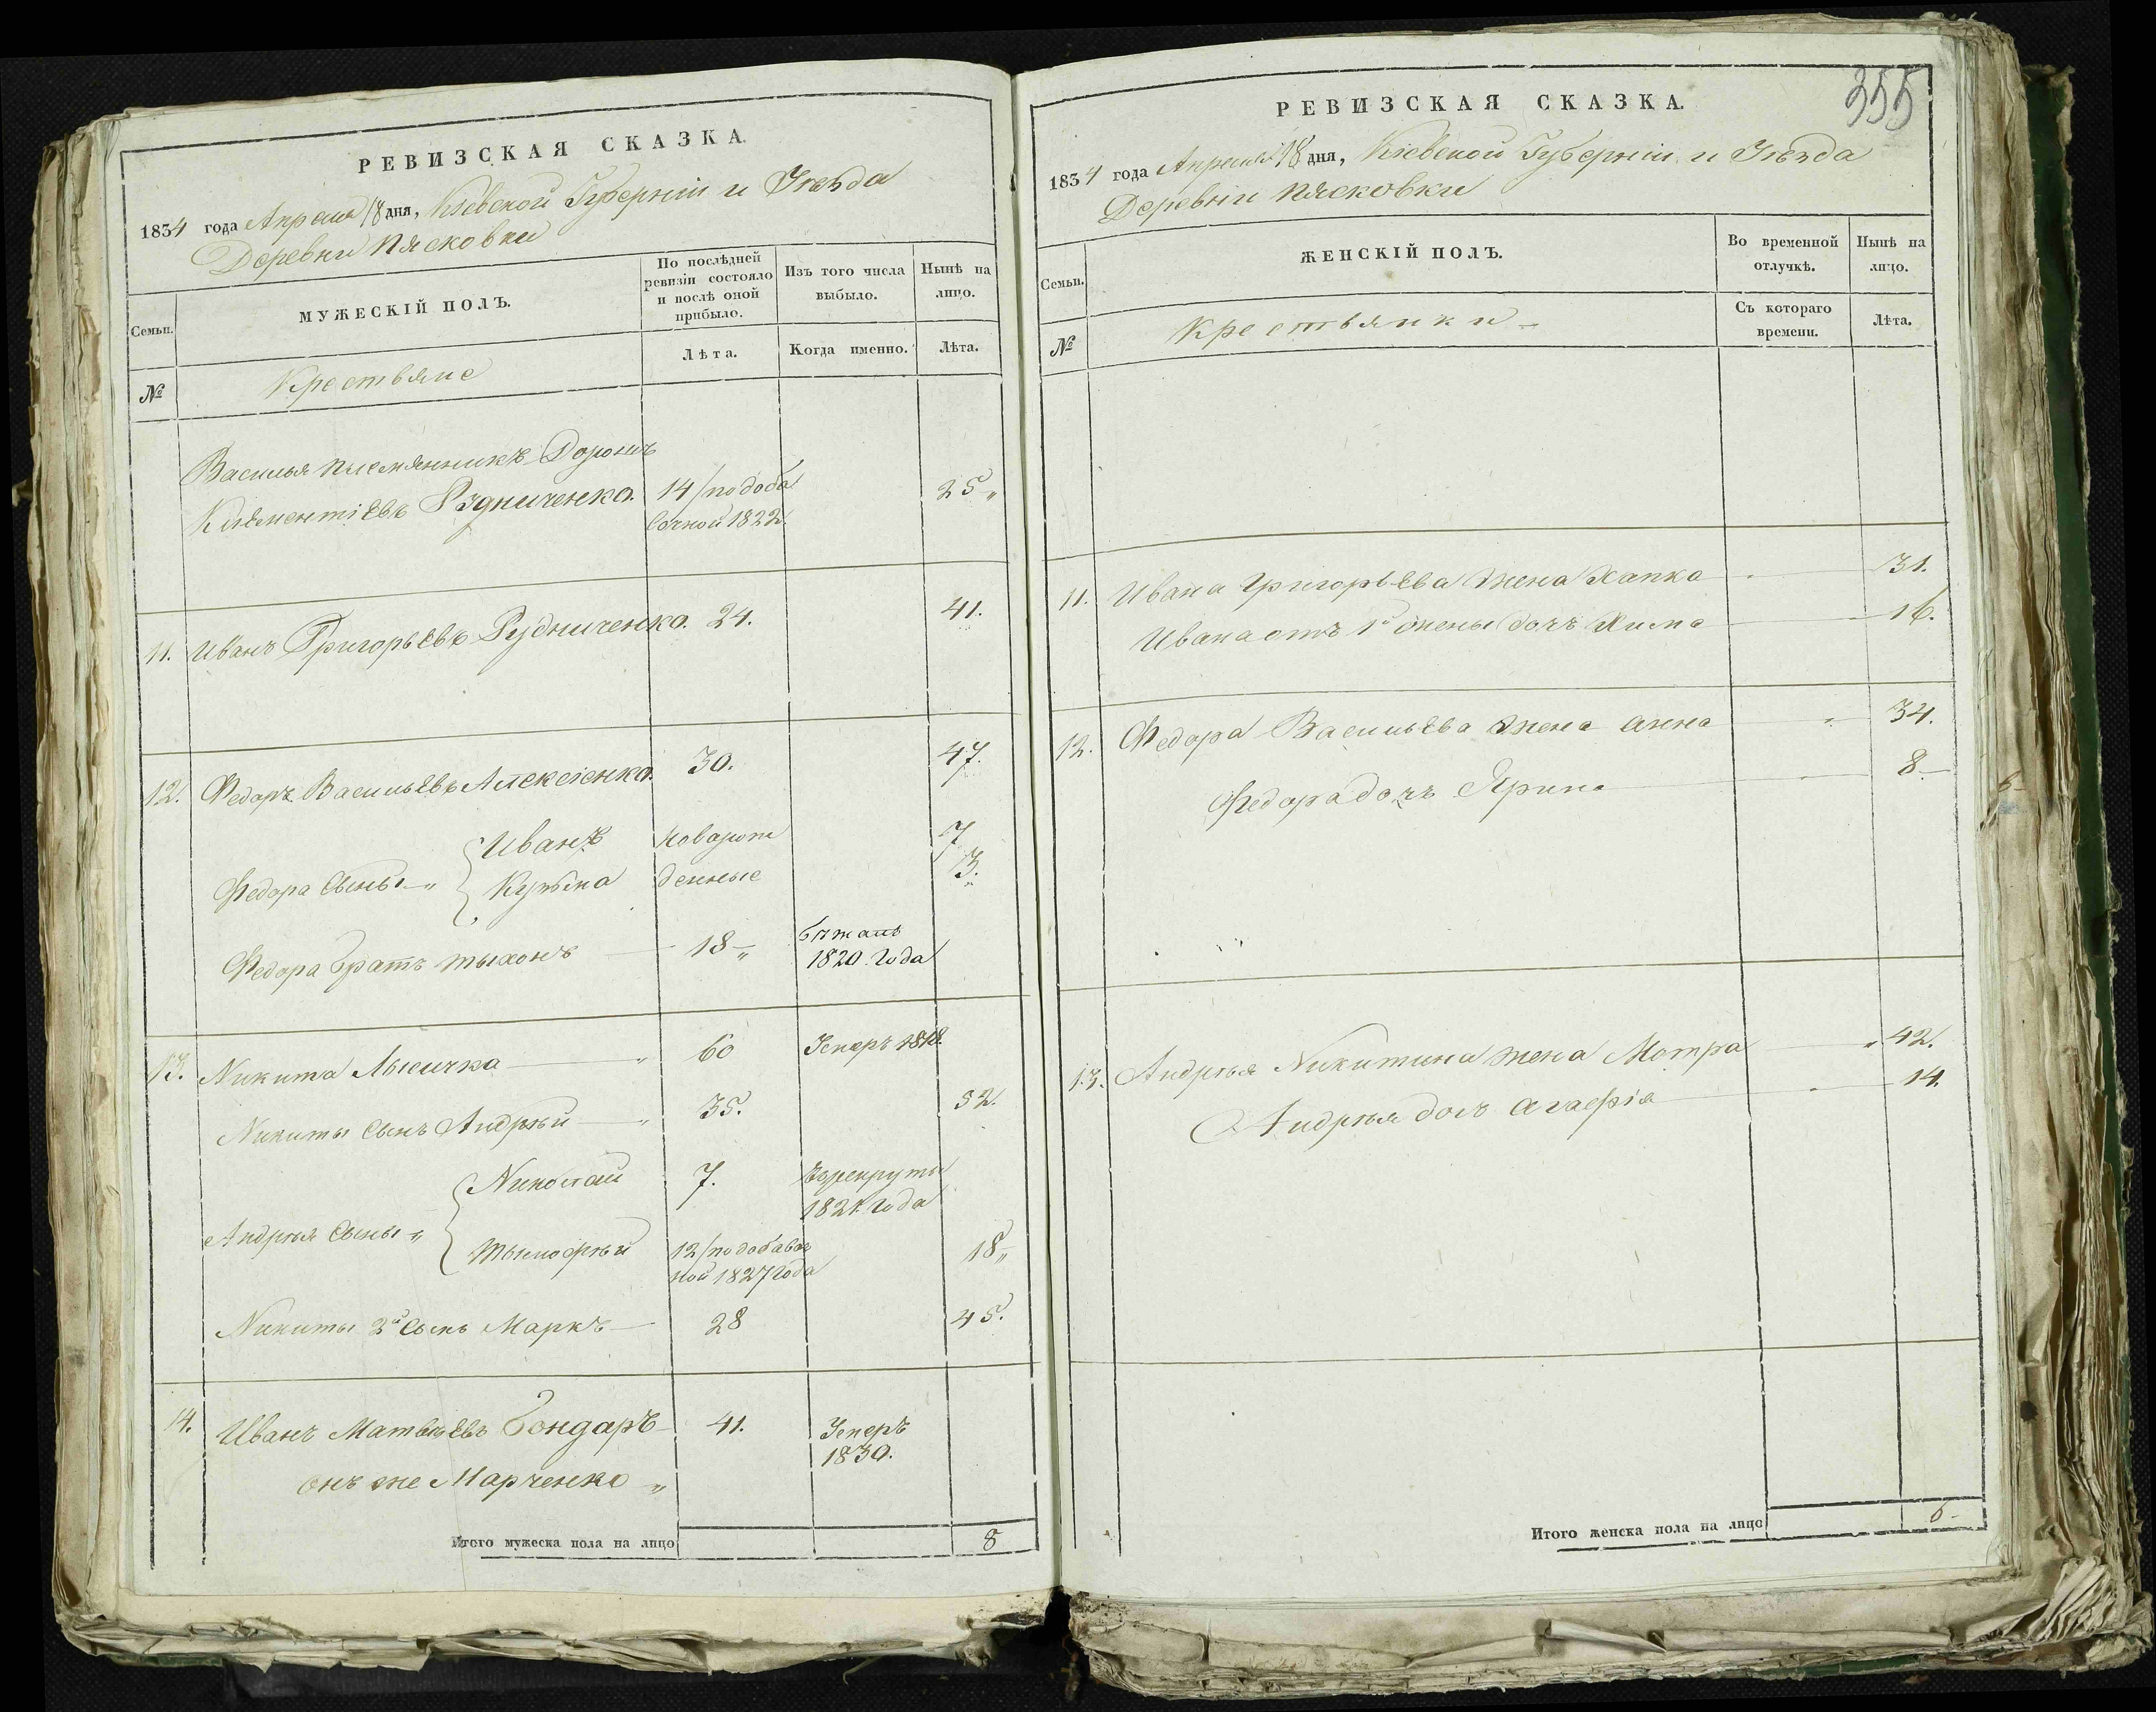 РЕВИЗСКАЯ СКАЗКА.
1834 года Апреля 18 дня, Кіевской Губерніи и Уезда
Деревни Пясковки
Семьи.
МУЖЕСКІЙ ПОЛЪ.
По послѣдней ревизіи состояло и послѣ оной прибыло.
Изъ того числа выбыло.
Нынѣ на лицо.
№
Крестьяне
Лѣта.
Когда именно.
Лѣта.
Василья племянникъ Доронъ
Климентіевъ Рудниченко. 14/по доба
вочной 1822. 25
11. Иванъ Григорьевъ Рудниченко. 24. 41.
12. Федоръ Васильевъ Алексіенко. 30. 47.
Федора сыны Иванъ новарож 7
Кузьма денные 3.
Федора братъ Тыхонъ 18 бежалъ
1820 года
13. Никита Лысичка 60 Умеръ 1818.
Никиты сынъ Андрѣй 35. 52.
Андрѣя сыны Николай 7. в рекруты
1821 года
Тымофѣй 12/по добавоч 18
ной 1827 года
Никиты 2й сынъ Маркъ 28 45.
14. Иванъ Матвѣевъ Бондаръ 41. Умеръ
1830.
онъ же Марченко
Итого мужеска пола на лицо 8
355
РЕВИЗСКАЯ СКАЗКА.
1834 года Апреля 18 дня, Кіевской Губерніи и Уѣзда
Деревни Пясковки
Семьи.
ЖЕНСКІЙ ПОЛЪ.
Во временной отлучкѣ.
Нынѣ на лицо.
№
Крестьянки
Съ котораго времени.
Лѣта.
11. Ивана Григорьева жена Хапка 31.
Ивана отъ 1й жены дочъ Хима 16.
12. Федора Васильева жена Анна 34.
Федора дочъ Ярина 8
13. Андрѣя Никитина жена Мотра 42.
Андрѣя дочъ Агафія 14.
Итого женска пола на лицо 6